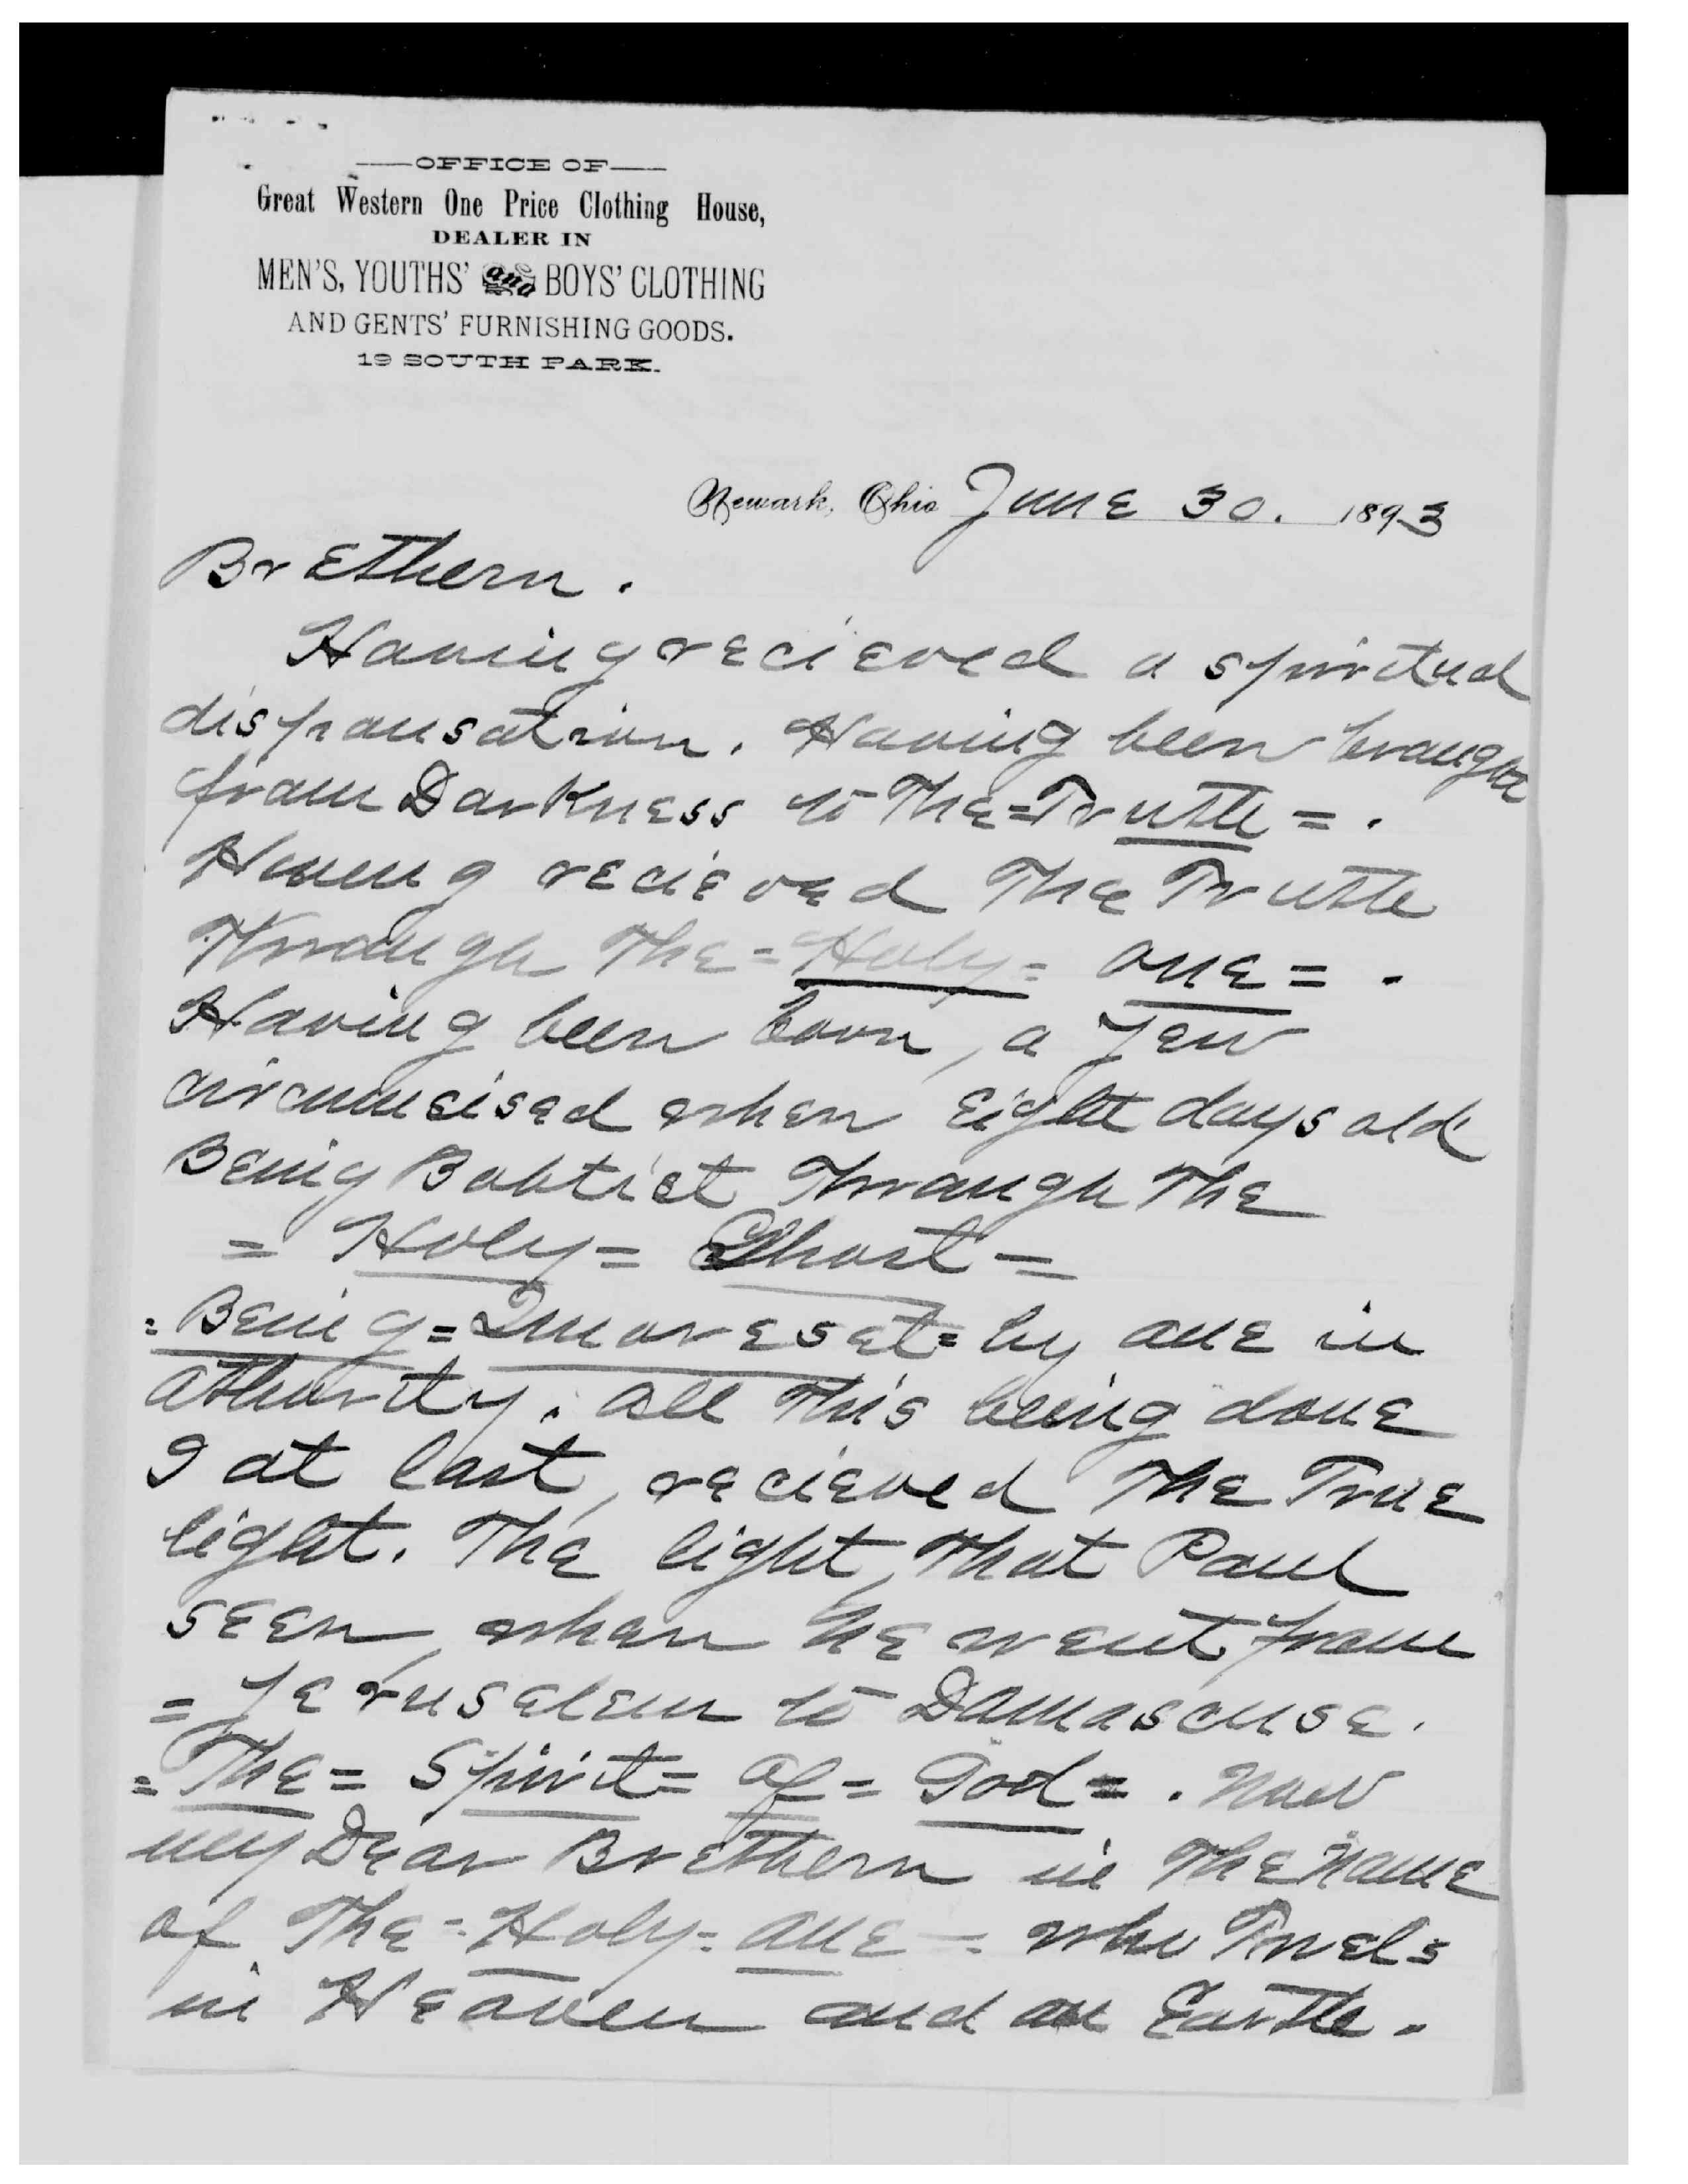 OFFICE OF
Great Western One Price Clothing House,
DEALER IN
MEN'S, YOUTHS' and BOYS' CLOTHING
AND GENTS' FURNISHING GOODS.
19 SOUTH PARK.
Newark, Ohio June 30. 1893
Brethern.
Having recieved a spiritual
dispansation. Having been brought
from Darkness to The=Truth=.
Having recieved The Truth
Through The=Holy=one=.
Having been born, a Jew
circumcised when Eight days old
Being Babtist Through The
=Holy=Ghost=
=Being= by one in
athority. All This being done
I at last, recieved The True
light. The light, That Paul
seen, when he went from
=Jerusalem to Damascuse.
=The=Spirit=of=God=. Now
my Dear Brethern in The name
of The=Holy=one= who
in Heaven and on Earth.